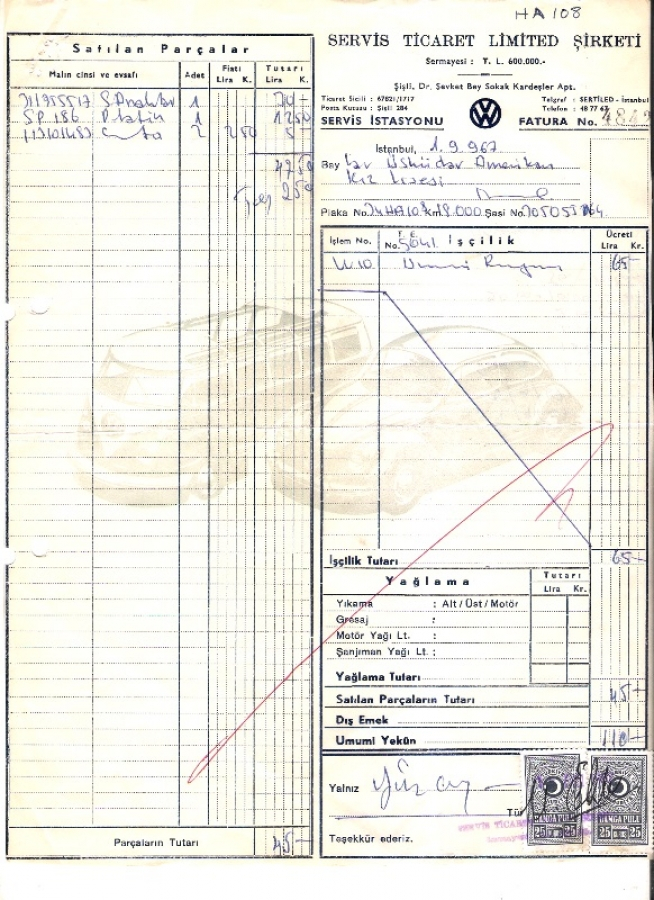 HA 108
SERVİS TİCARET LİMİTED ŞİRKETİ
Sermayesi : T. L. 600.000.-
Şişli, Dr. Şevket Bey Sokak Kardeşler Apt.
Ticaret Sicili : 67821/1717
Posta Kutusu : Şişli 284
Telgraf : SERTİLED - İstanbul
Telefon : 48 77 67
SERVİS İSTASYONU
VW
FATURA No.
İstanbul, 1.9.967
Bay Üsküdar Amerikan
Kız Lisesi
Plaka No. 34HA108 Km. Şasi No.
Satılan Parçalar
Malın cinsi ve evsafı
Adet
Fiatı
Lira K.
Tutarı
Lira K.
1
SP 186 Platin 1 1250
2 250 5-
4750
250
Parçaların Tutarı 45-
İşlem No.
F. E. No. 5641
İşçilik
Ücreti
Lira Kr.
65-
İşçilik Tutarı 65-
Yağlama
Tutarı
Lira Kr.
Yıkama : Alt / Üst / Motör
Gresaj :
Motör Yağı Lt. :
Şanjıman Yağı Lt. :
Yağlama Tutarı
Satılan Parçaların Tutarı 45-
Dış Emek
Umumi Yekûn 110-
Yalnız Yüz on
Teşekkür ederiz.
SERVİS TİCARET
DAMGA PULU
25 25
DAMGA PULU
25 25